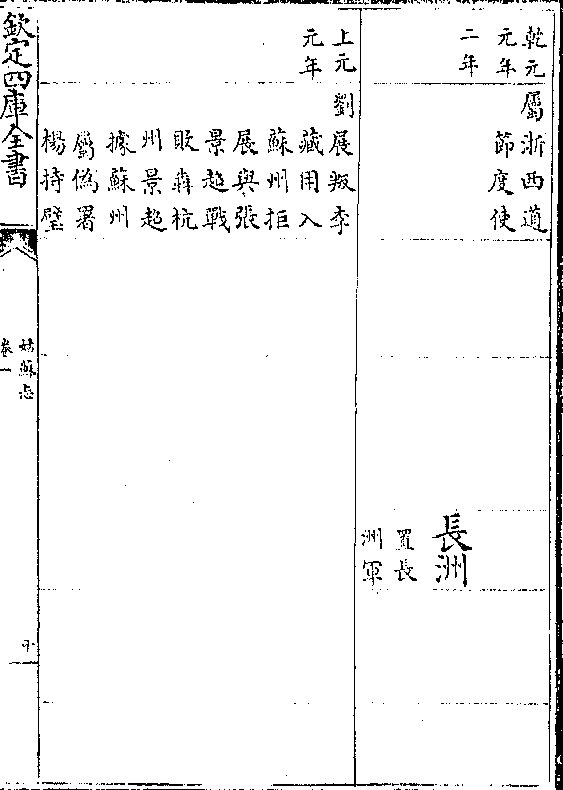 乾元
元年
二年
屬浙西道
節度使
長洲
置長
洲軍
上元
元年
劉展叛李
藏用入
蘇州拒
展與張
景超戰
敗犇杭
州景超
據蘇州
屬偽署
楊持璧
欽定四庫全書
姑蘇志
卷一